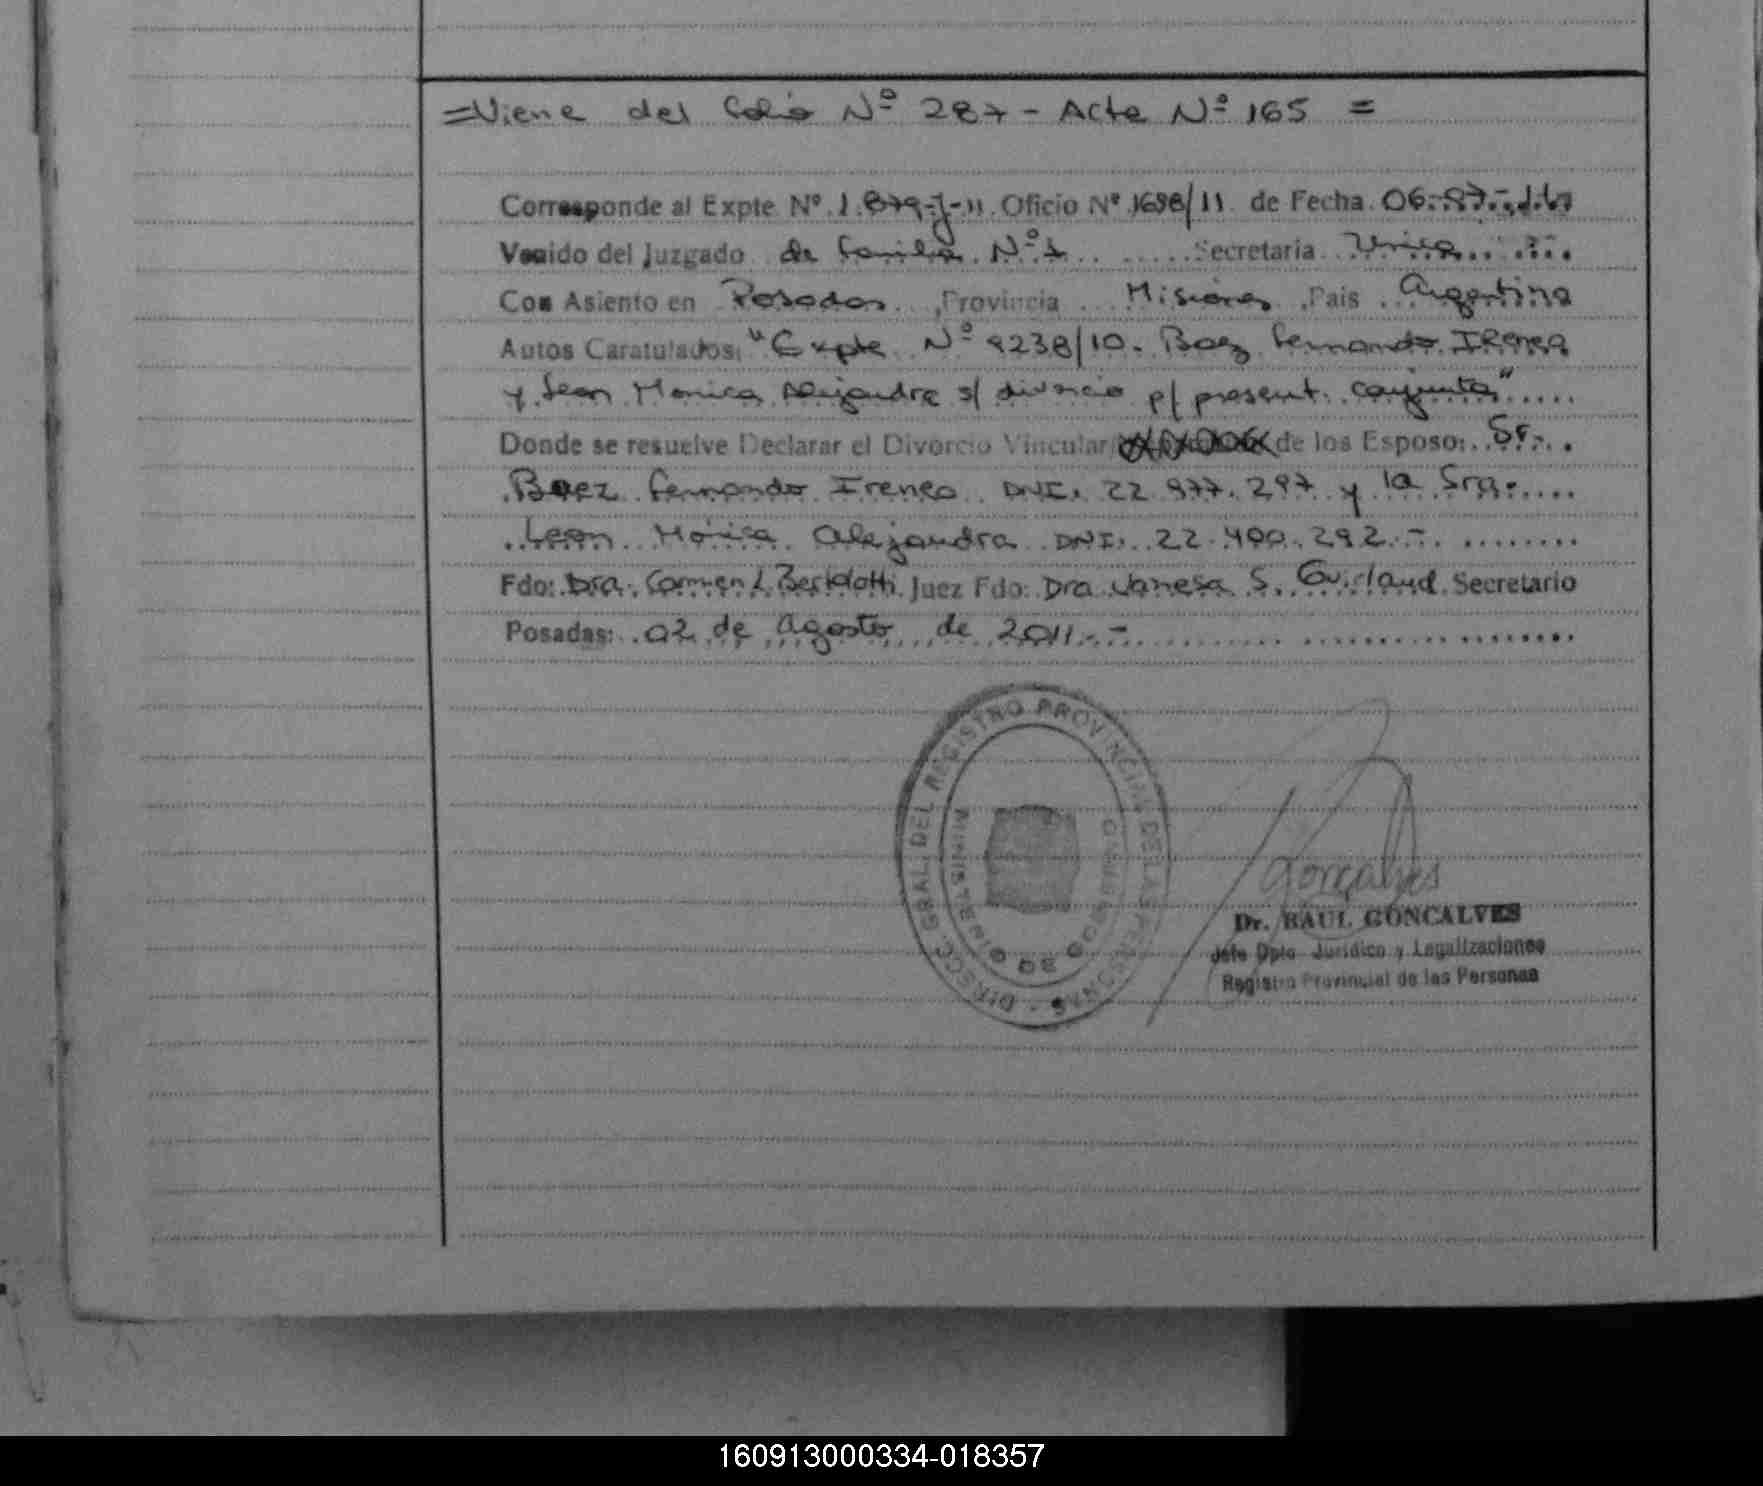 =Viene del Folio Nº 287 - Acta Nº 165 =
Corresponde al Expte Nº 1.879-J-11 Oficio Nº 1698/11 de Fecha 06-07-
Venido del Juzgado de Familia Nº 1 Secretaria Unica
Con Asiento en Posadas Provincia Misiones Pais Argentina
Autos Caratulados: "Expte Nº 9238/10. Baez Fernando Ireneo
y Leon Monica Alejandra s/ divorcio p/ present. conjunta"
Donde se resuelve Declarar el Divorcio Vincular de los Esposo: Sr.
Baez Fernando Ireneo DNI. 22.977.297 y la Sra.
Leon Mónica Alejandra DNI. 22.400.292.-
Fdo: Dra. Carmen L. Bertolotti Juez Fdo: Dra Vanesa S. Guirland Secretario
Posadas: 02 de Agosto de 2011.-
DIRECC. GRAL. DEL REGISTRO PROVINCIAL DE LAS PERSONAS
MINISTERIO DE GOBIERNO
Goncalves
Dr. RAUL GONCALVES
Jefe Dpto Juridico y Legalizaciones
Registro Provincial de las Personas
160913000334-018357